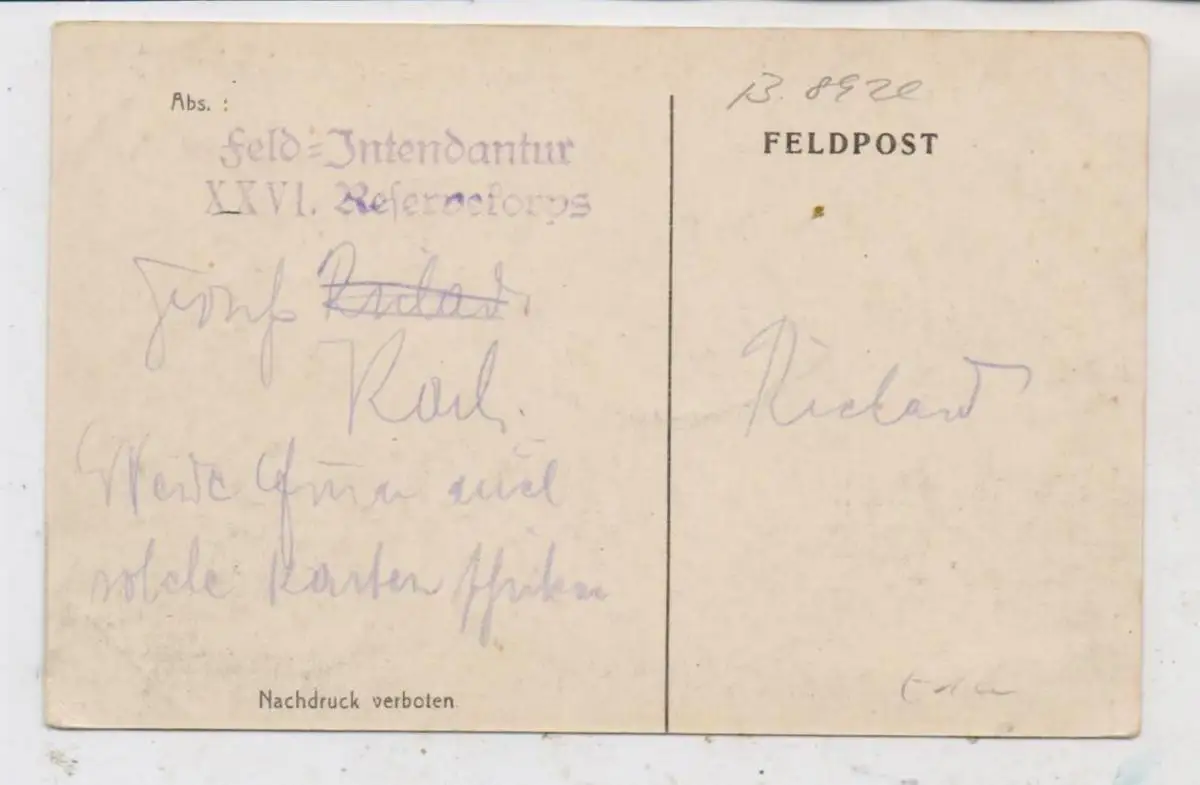 Abs. :
Feld-Intendantur
XXVI. Reservekorps
Karl.
Werde Ihnen auch
solche Karten schicken
Nachdruck verboten
B. 8920
FELDPOST
Richard